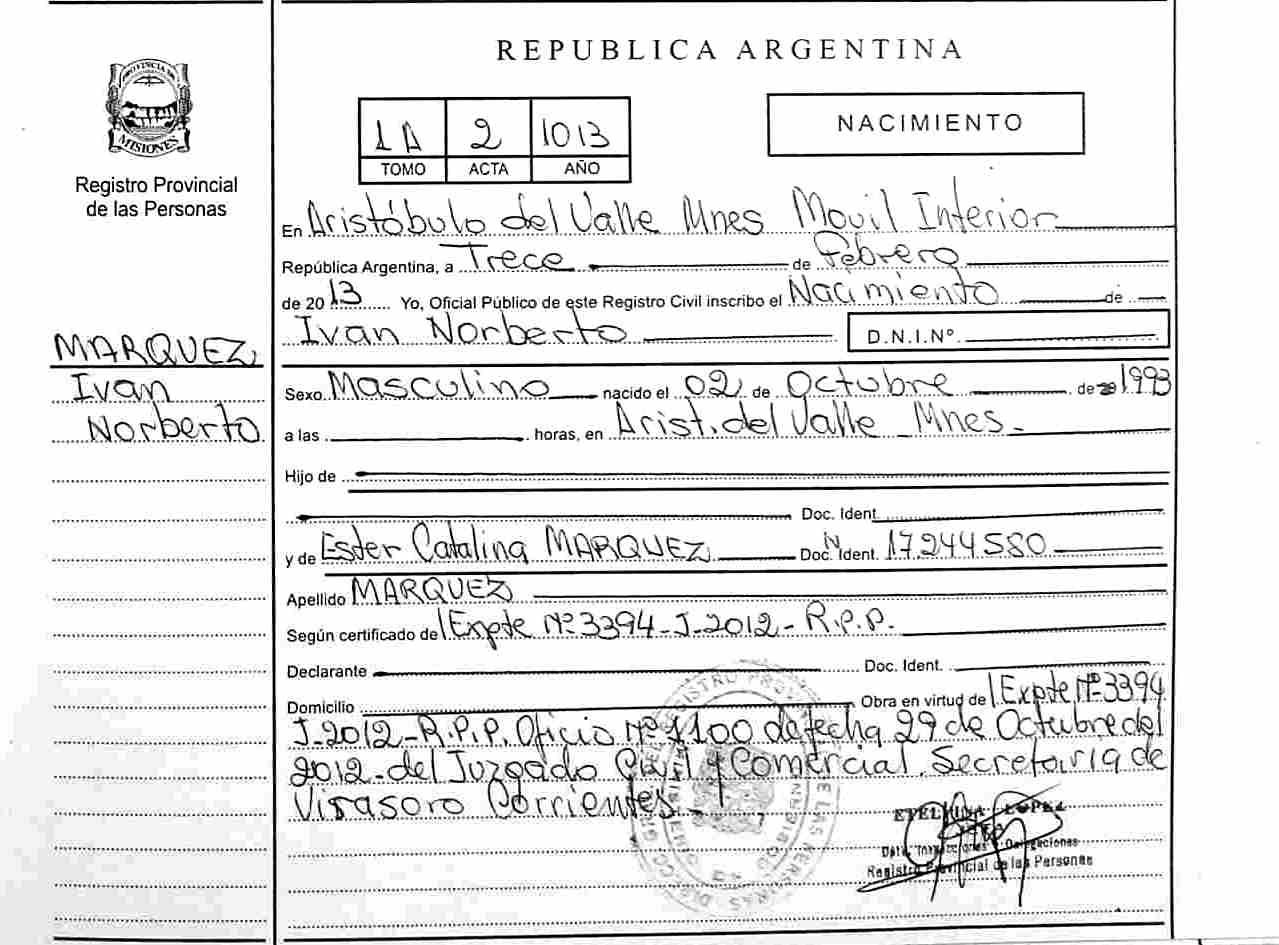 REPUBLICA ARGENTINA
PROVINCIA DE
MISIONES
Registro Provincial
de las Personas
1A 2 1013
TOMO ACTA AÑO
NACIMIENTO
En Aristóbulo del Valle Mnes Movil Interior
República Argentina, a Trece de Febrero
de 2013 Yo, Oficial Público de este Registro Civil inscribo el Nacimiento de
Ivan Norberto D.N.I.Nº
MARQUEZ
Ivan
Norberto
Sexo Masculino nacido el 02 de Octubre de 1993
a las horas, en Arist. del Valle Mnes.
Hijo de
Doc. Ident.
y de Ester Catalina MARQUEZ Doc. Ident. 17.244.580
Apellido MARQUEZ
Según certificado de Expte Nº 3394-J-2012-R.P.P.
Declarante Doc. Ident.
Domicilio Obra en virtud de Expte Nº 3394
J-2012-R.P.P. Oficio Nº 1100 de fecha 29 de Octubre del
2012-del Juzgado Civil y Comercial. Secretaria de
Virasoro Corrientes.
ETELVINA LOPEZ
Registro Provincial de las Personas